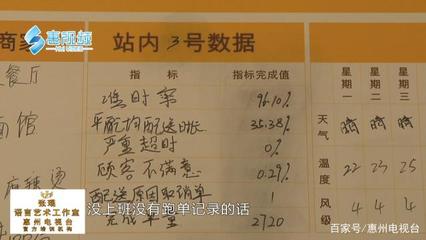 惠视频
商家
站内3号数据
指标 指标完成值
星期一 星期二 星期三
餐厅
准时率 96.10%
面馆
平均配送时长 35.38%
天气 晴 晴 晴
严重超时 0%
顾客不满意 0.29%
温度 22 23 25
麻辣烫
配送原因取消单 1
风级 4 4 4
完成单量 2720
张瑞
语言艺术工作室
惠州电视台
官方培训机构
没上班没有跑单记录的话
百家号/惠州电视台